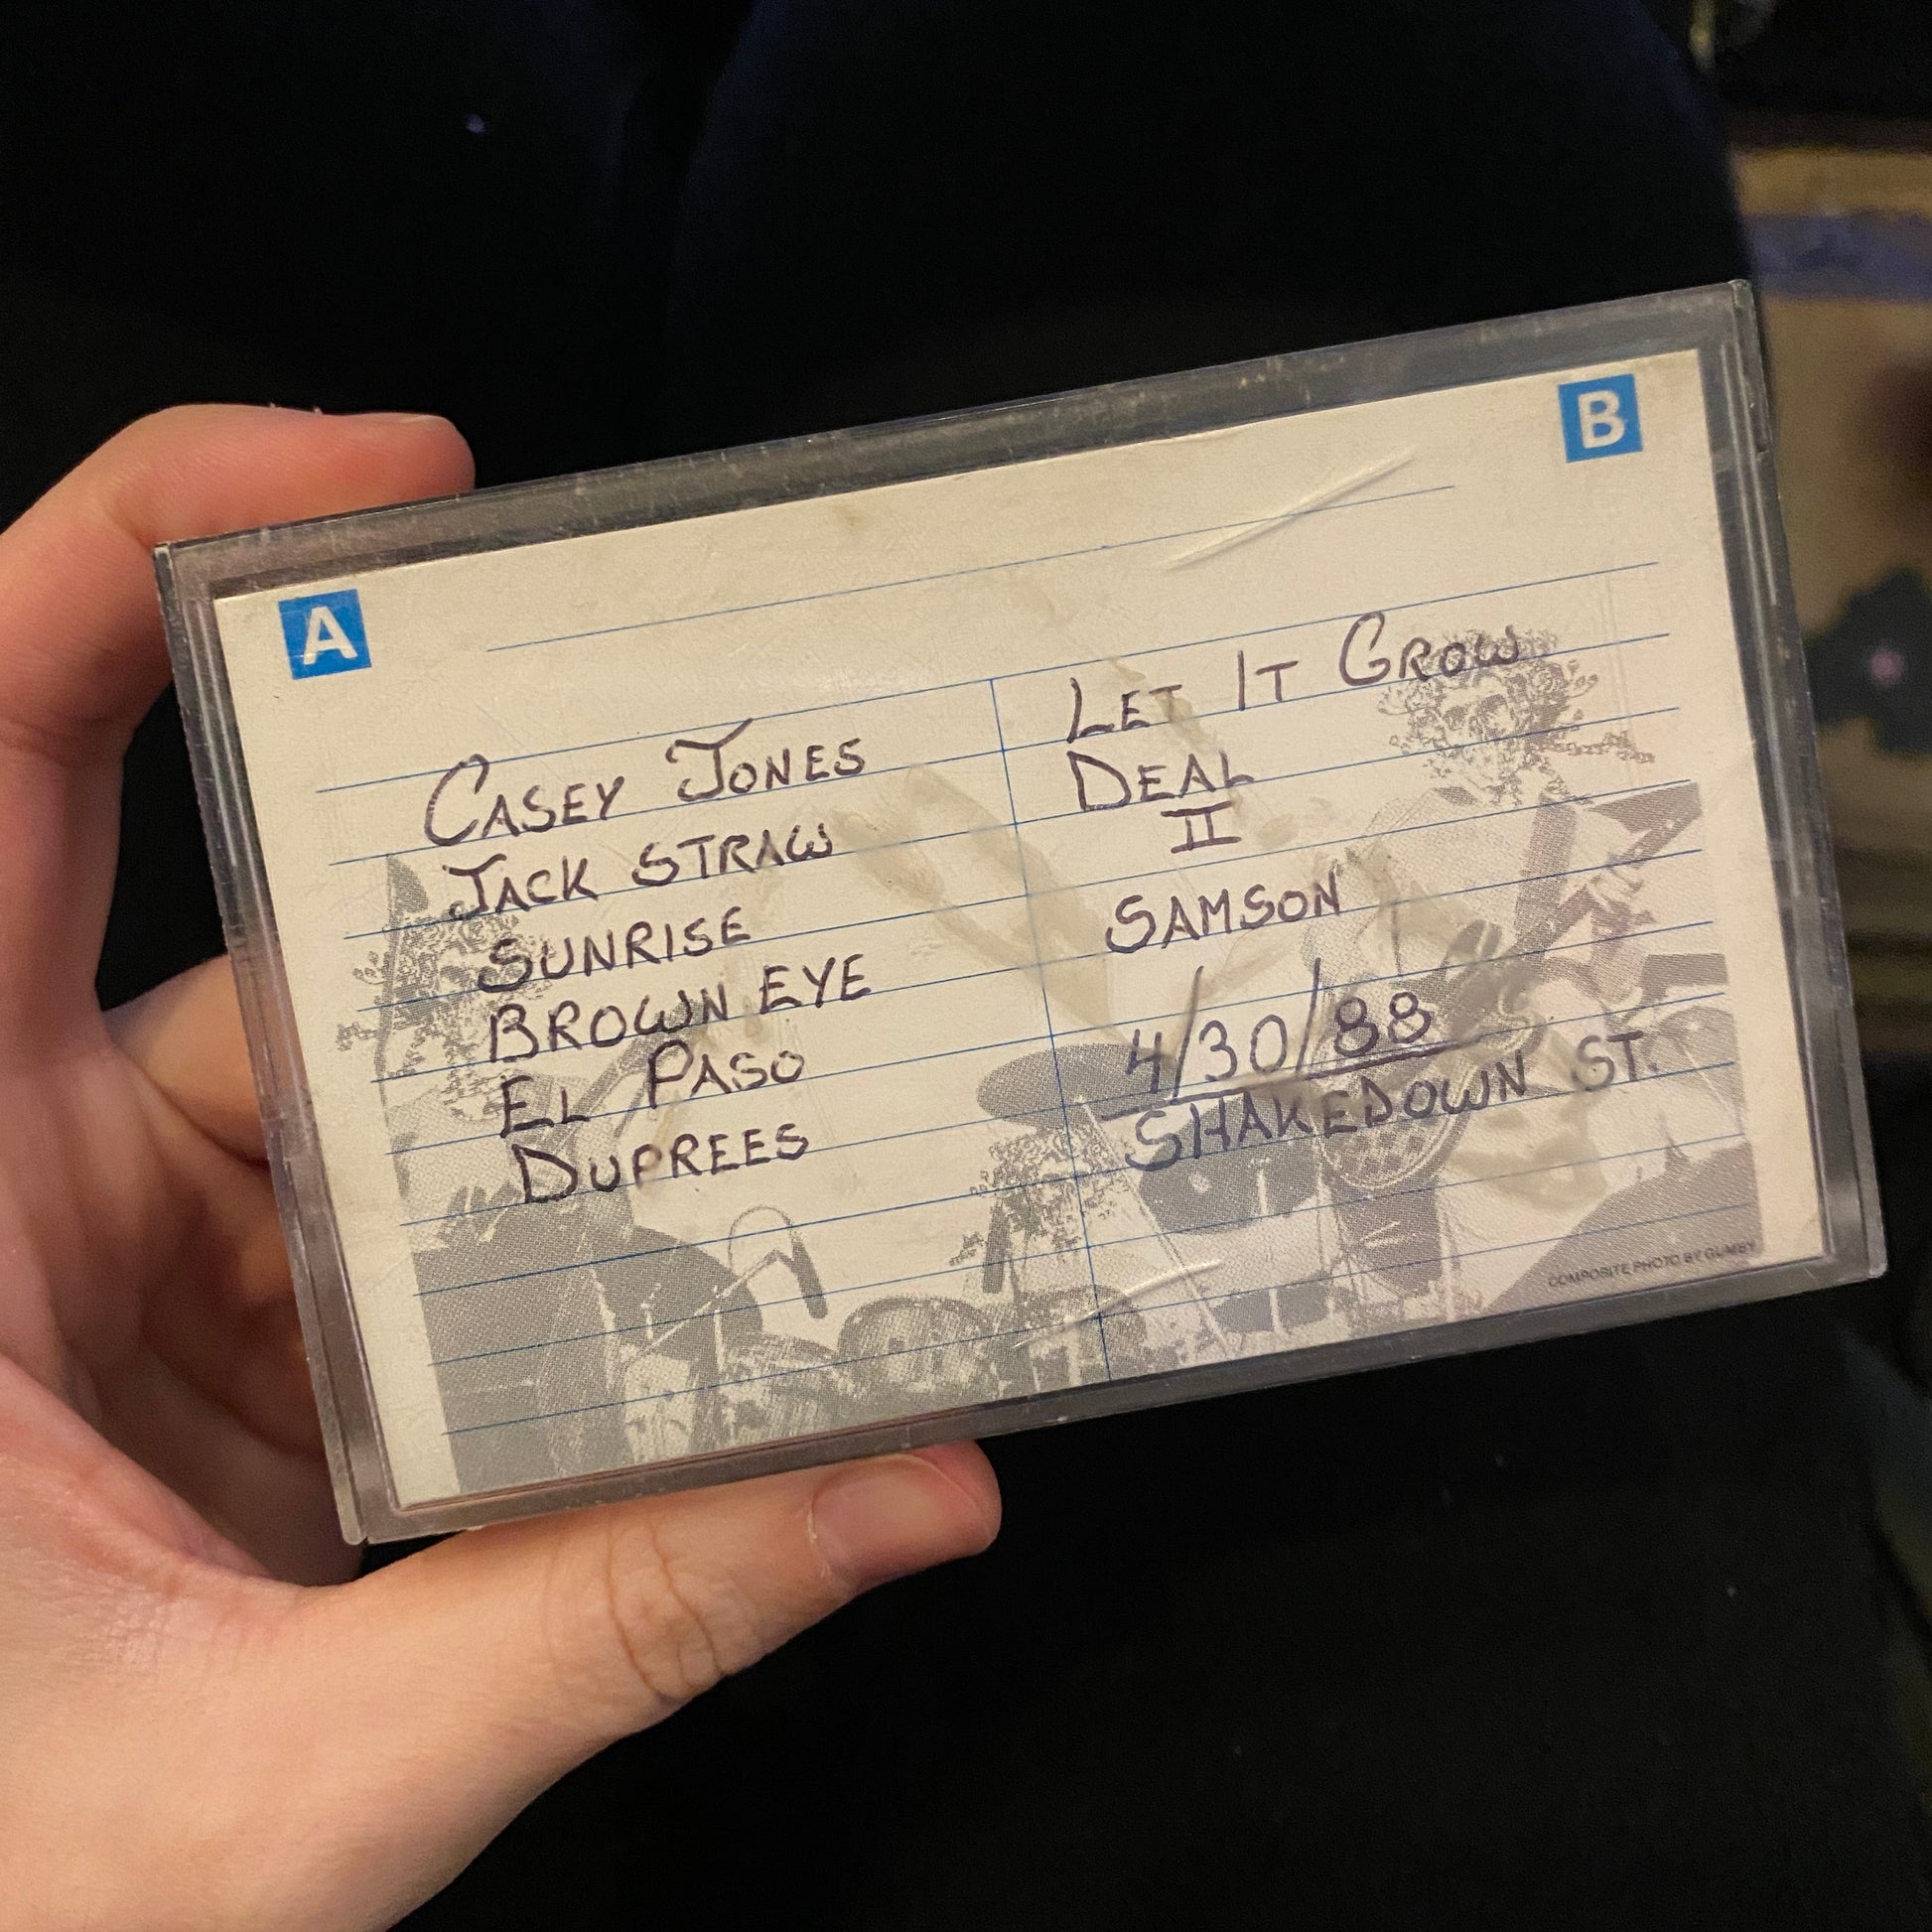 A
B
CASEY JONES
JACK STRAW
SUNRISE
BROWN EYE
EL PASO
DUPREES
LET IT GROW
DEAL
II
SAMSON
4/30/88
SHAKEDOWN ST.
COMPOSITE PHOTO BY GUMBY